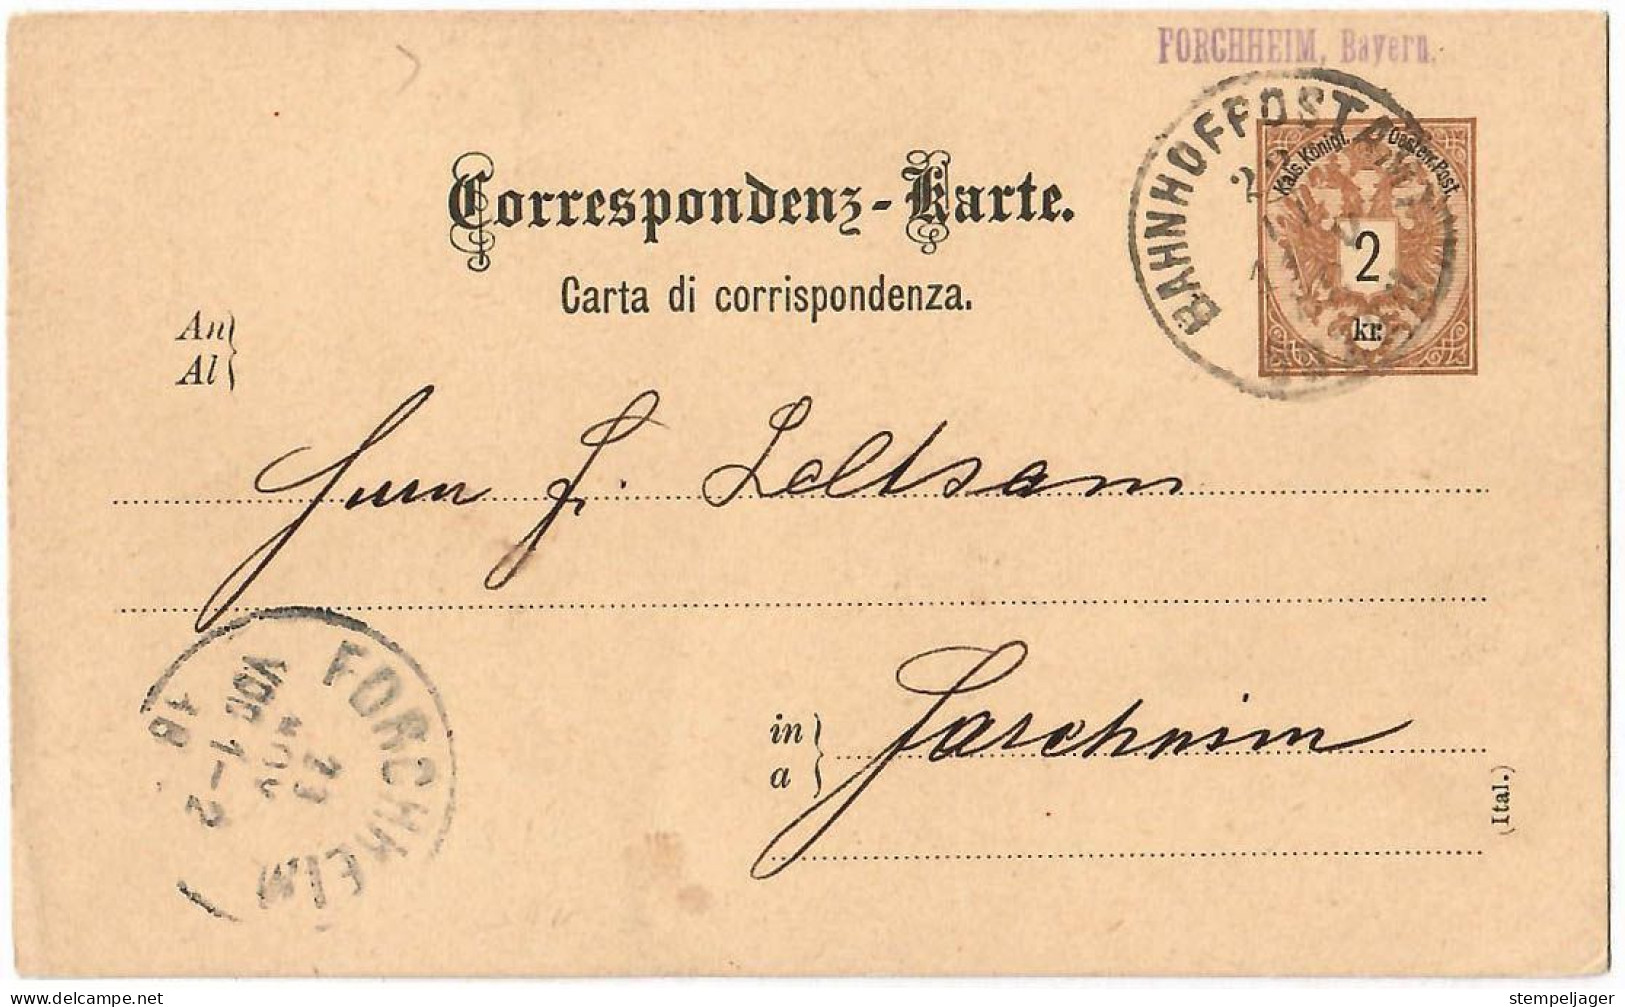 FORCHHEIM, Bayern.
BAHNHOFPOSTAMT
Kais. Königl. Oesterr. Post.
2
kr.
Correspondenz-Karte.
Carta di corrispondenza.
An
Al
Herrn F. Leltsam
in
a
Forchheim
(Ital.)
FORCHHEIM
23
NOV
VOR 1-2
18
delcampe.net
stempeljager